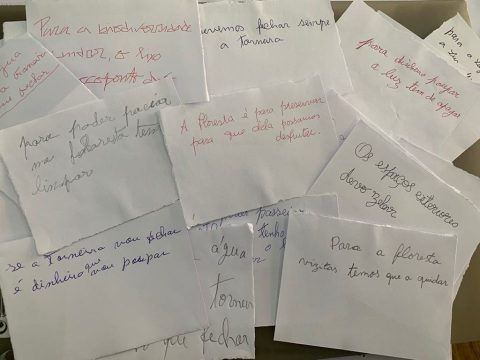 Para a biodiversidade
mudar, o lixo
devemos fechar sempre
a torneira
para dinheiro poupar
a luz tem de apagar
para a
a luz
água
a torneira
fechar
para poder passear
na floresta tem
limpar
A floresta é para preservar
para que dela possamos
desfrutar.
Os espaços exteriores
devo zelar
se a Torneira vou fechar
é dinheiro que vou poupar
passear
tenho
o
água
torneira
que fechar
Para a floresta
vizitar temos que a quidar